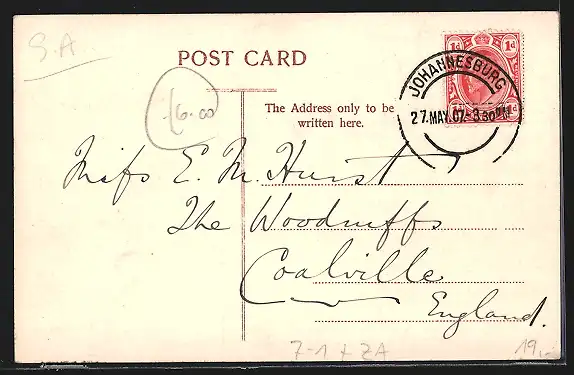 S.A
POST CARD
16.00
The Address only to be
written here.
1d 1d
JOHANNESBURG
27.MAY.07-3 30PM
Miss E. M. Hurst
The Woodruffs
Coalville
England.
7-1 + ZA
19.-